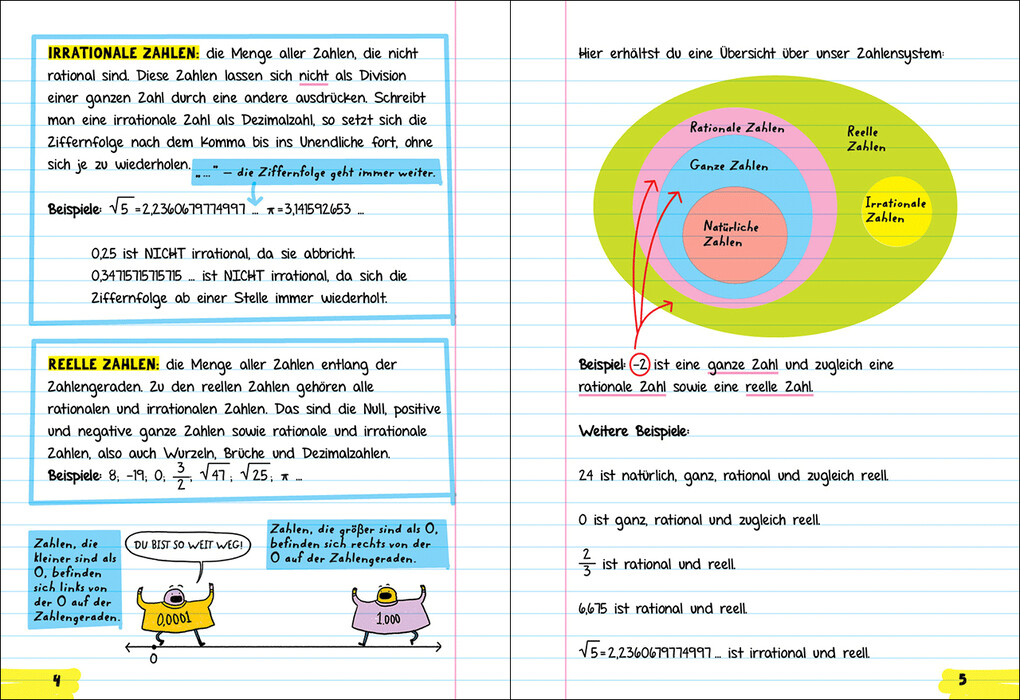 IRRATIONALE ZAHLEN: die Menge aller Zahlen, die nicht
rational sind. Diese Zahlen lassen sich nicht als Division
einer ganzen Zahl durch eine andere ausdrücken. Schreibt
man eine irrationale Zahl als Dezimalzahl, so setzt sich die
Ziffernfolge nach dem Komma bis ins Unendliche fort, ohne
sich je zu wiederholen.
„...“ – die Ziffernfolge geht immer weiter.
Beispiele: √5 = 2,2360679774997 ... π = 3,141592653 ...
0,25 ist NICHT irrational, da sie abbricht.
0,3471571571571 5 ... ist NICHT irrational, da sich die
Ziffernfolge ab einer Stelle immer wiederholt.
REELLE ZAHLEN: die Menge aller Zahlen entlang der
Zahlengeraden. Zu den reellen Zahlen gehören alle
rationalen und irrationalen Zahlen. Das sind die Null, positive
und negative ganze Zahlen sowie rationale und irrationale
Zahlen, also auch Wurzeln, Brüche und Dezimalzahlen.
Beispiele: 8; –19; 0; 3/2, √47; √25; π ...
Zahlen, die
kleiner sind als
0, befinden
sich links von
der 0 auf der
Zahlengeraden.
DU BIST SO WEIT WEG!
Zahlen, die größer sind als 0,
befinden sich rechts von der
0 auf der Zahlengeraden.
0,0001
1.000
0
4
Hier erhältst du eine Übersicht über unser Zahlensystem:
Rationale Zahlen
Reelle
Zahlen
Ganze Zahlen
Irrationale
Zahlen
Natürliche
Zahlen
Beispiel: –2 ist eine ganze Zahl und zugleich eine
rationale Zahl sowie eine reelle Zahl.
Weitere Beispiele:
24 ist natürlich, ganz, rational und zugleich reell.
0 ist ganz, rational und zugleich reell.
2/3 ist rational und reell.
6,675 ist rational und reell.
√5 = 2,2360679774997 ... ist irrational und reell.
5